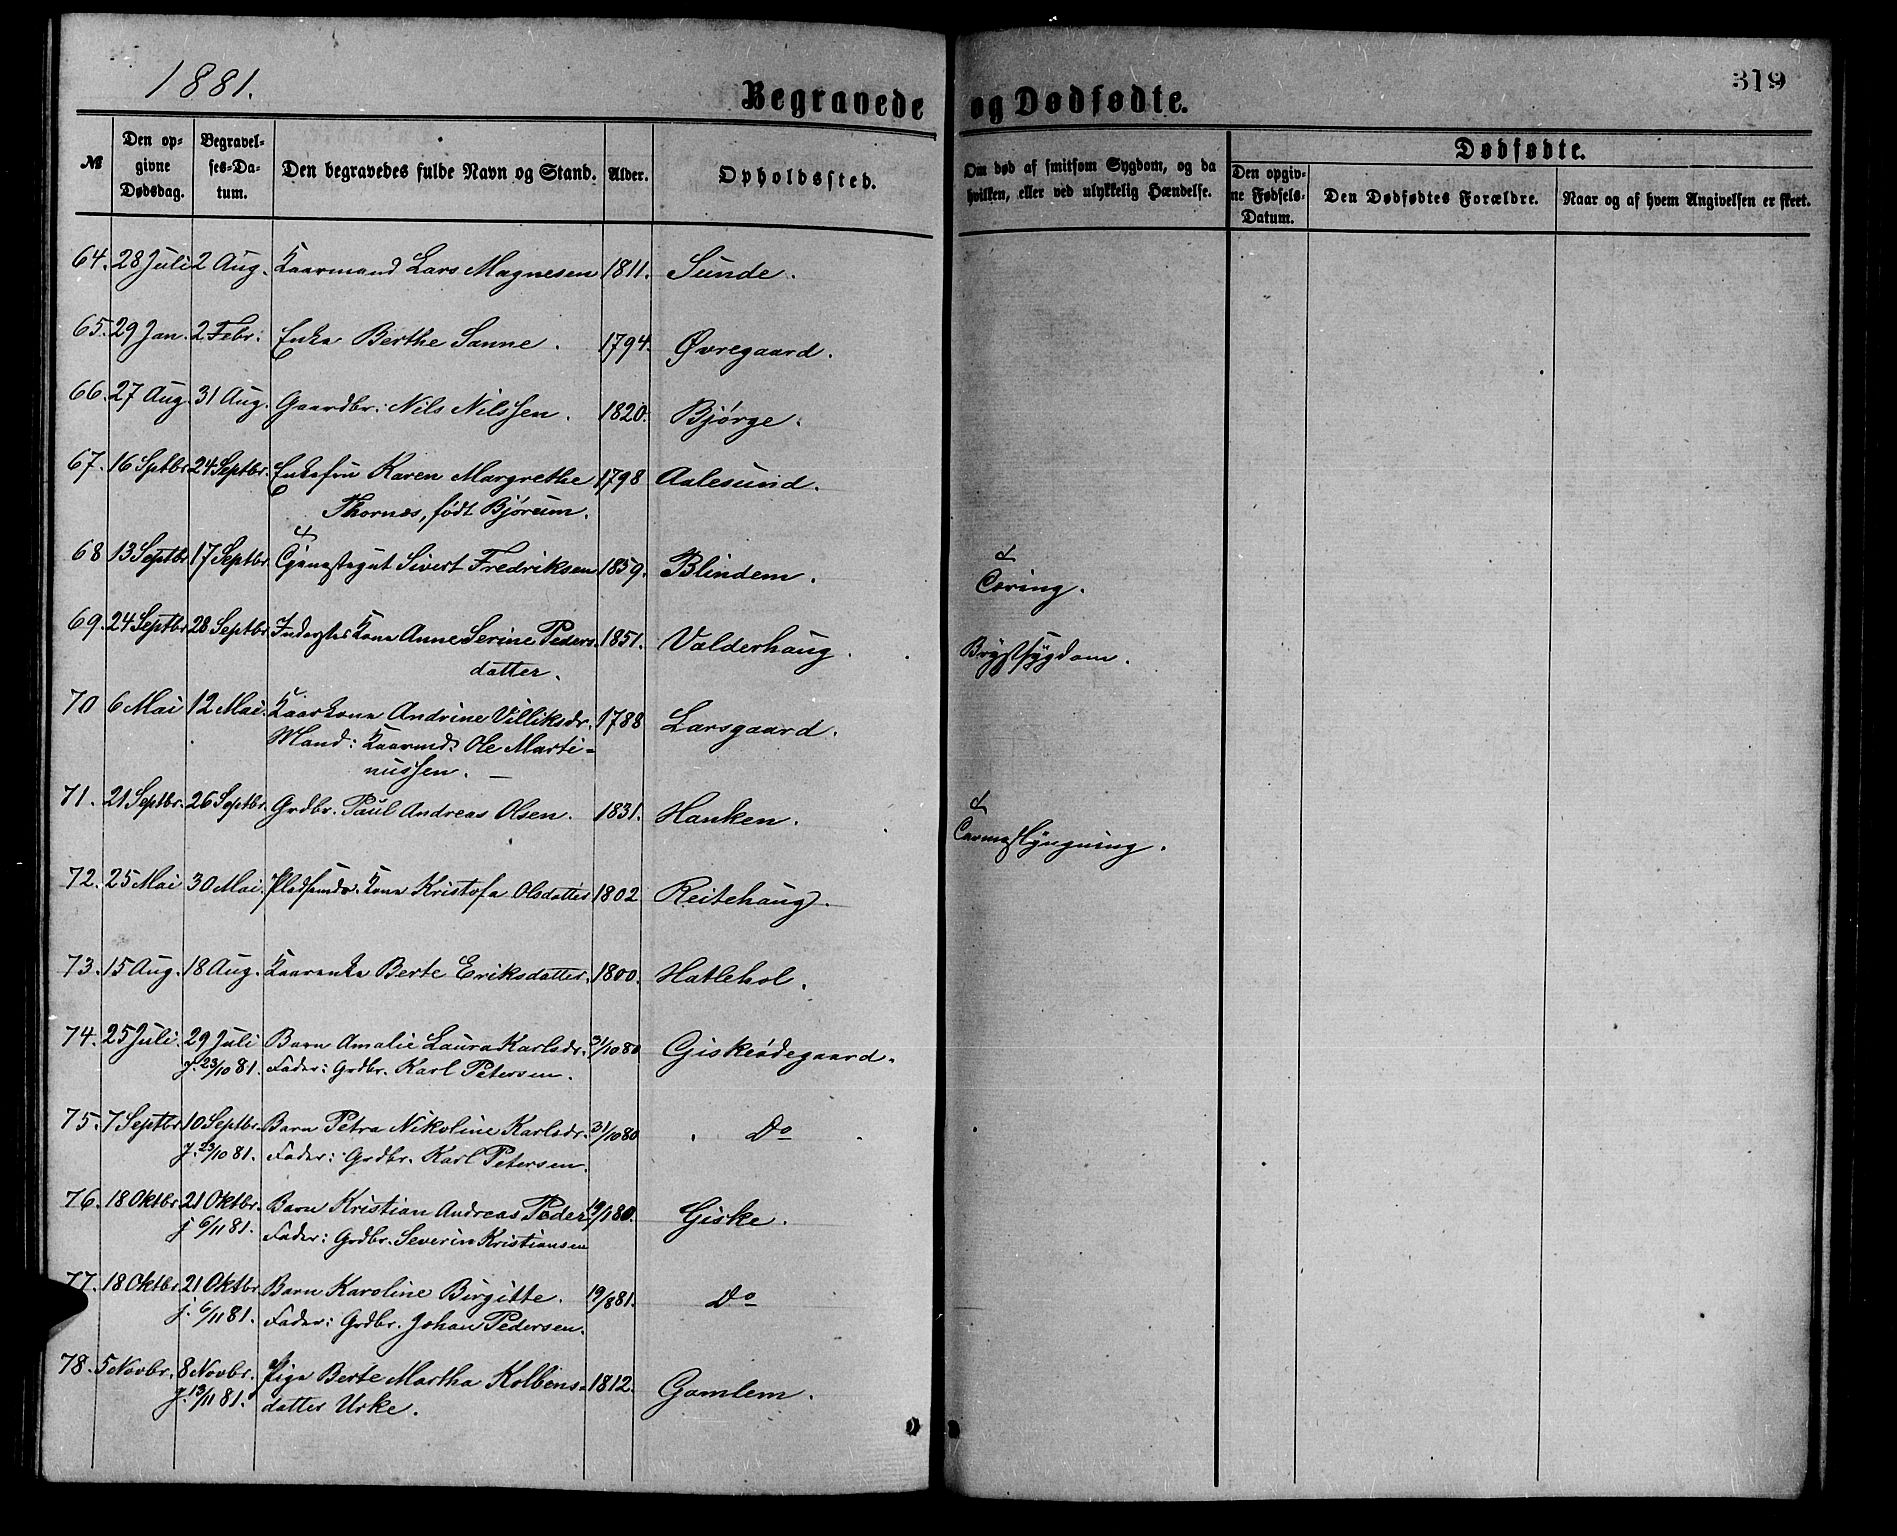 1881.
Begravede og Dødfødte.
319
№
Den opgivne Dødsdag.
Begravelses-Datum.
Den begravedes fulde Navn og Stand.
Alder.
Opholdssted.
Om død af smitsom Sygdom, og da hvilken, eller ved ulykkelig Hændelse.
Dødfødte.
Den opgivne Fødsels-Datum.
Den Dødfødtes Forældre.
Naar og af hvem Angivelsen er skeet.
64. 28 Juli 2 Aug. Kaarmand Lars Magnesen 1811. Sunde.
65. 29 Jan. 2 Febr. Enke Berthe Sanne. 1794. Øvregaard.
66. 27 Aug. 31 Aug. Gaardbr. Nils Nilssen. 1820. Bjørge.
67. 16 Sptbr. 24 Septbr. Enkefru Karen Margrethe 1798 Aalesund.
Thornes, født Bjørum.
68 13 Septbr 17 Septbr. Tjenestegut Sivert Fredriksen 1859. Blindem. Tæring.
69. 24 Septbr 28 Septbr. Inderstes Kone Anne Serine Peders- 1851. Valderhaug. Brystsygdom.
datter.
70 6 Mai 12 Mai. Kaarkone Andrine Villiksdr. 1788 Larsgaard.
Mand: Kaarmd. Ole Marti-
nussen.
71. 21 Septbr. 26 Septbr. Grdbr. Paul Andreas Olsen. 1831. Hanken. Tarmeslyngning.
72. 25 Mai 30 Mai. Pladsmds. Kone Kristofa Olsdatter 1802 Reitehaug.
73. 15 Aug. 18 Aug. Kaarenke Berte Eriksdatter. 1800. Hatlehol.
74. 25 Juli. 29 Juli Barn Amalie Laura Karlsdr. 31/10 80 Giskeødegaard.
j. 23/10 81. Fader: Grdbr. Karl Petersen.
75. 7 Septbr 10 Septbr. Barn Petra Nikoline Karlsdr. 31/10 80 Do
j. 23/10 81. Fader: Grdbr. Karl Petersen.
76. 18 Oktbr 21 Oktbr. Barn Kristian Andreas Peder 19/1 80. Giske.
j 6/11 81. Fader: Grdbr. Severin Kristiansen
77. 18 Oktbr 21 Oktbr Barn Karoline Birgitte. 19/8 81. Do
j. 6/11 81. Fader: Grdbr. Johan Pedersen.
78. 5 Novbr. 8 Novbr. Pige Berte Martha Kolbens- 1812. Gamlem.
j. 13/11 81. datter Urke.